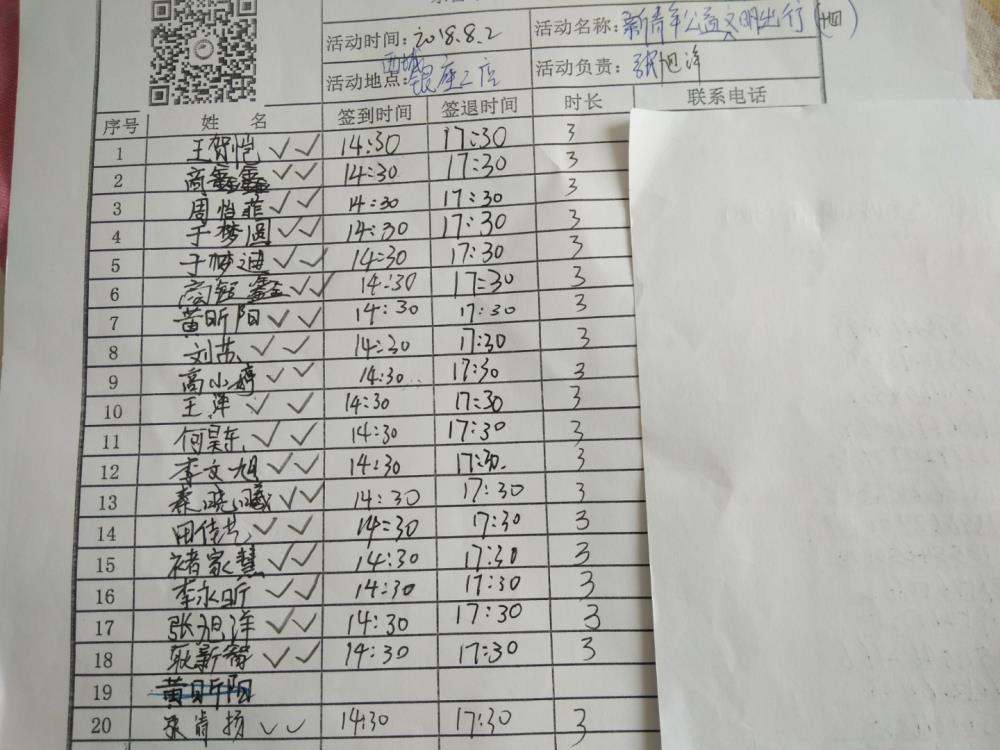 活动时间: 2018.8.2 活动名称: 新青年公益文明出行(十四)
活动地点: 西城银座二店 活动负责: 张旭洋
序号 姓 名 签到时间 签退时间 时长 联系电话
1 王贺恺 ✓✓ 14:30 17:30 3
2 商鑫鑫 ✓✓ 14:30 17:30 3
3 周怡菲 ✓✓ 14:30 17:30 3
4 于梦圆 ✓✓ 14:30 17:30 3
5 于梦迪 ✓✓ 14:30 17:30 3
6 鑫 ✓✓ 14:30 17:30 3
7 黄昕阳 ✓✓ 14:30 17:30 3
8 刘苏 ✓✓ 14:30 17:30 3
9 高小婷 ✓✓ 14:30 17:30 3
10 王洋 ✓✓ 14:30 17:30 3
11 何昊东 ✓✓ 14:30 17:30 3
12 李文旭 ✓✓ 14:30 17:30 3
13 秦晓曦 ✓✓ 14:30 17:30 3
14 田佳艺 ✓✓ 14:30 17:30 3
15 褚家慧 ✓✓ 14:30 17:30 3
16 李永昕 ✓✓ 14:30 17:30 3
17 张旭洋 ✓✓ 14:30 17:30 3
18 耿新智 ✓✓ 14:30 17:30 3
19 黄昕阳
20 扬 ✓✓ 14:30 17:30 3